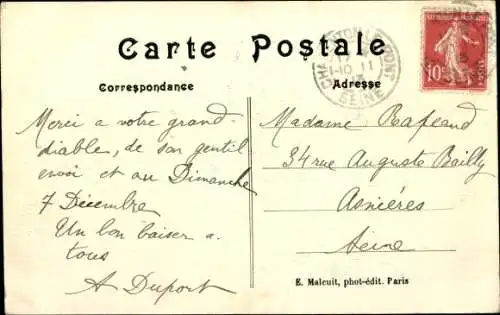 Carte Postale
Correspondance
Adresse
CHARENTON-LE-PONT
SEINE
10
Merci a votre grand
diable, de son gentil
envoi et au Dimanche
7 Décembre
Un bon baiser a
tous
A Duport
Madame
34 rue Auguste Bailly
Asnières
Seine
E. Malcuit, phot-édit. Paris